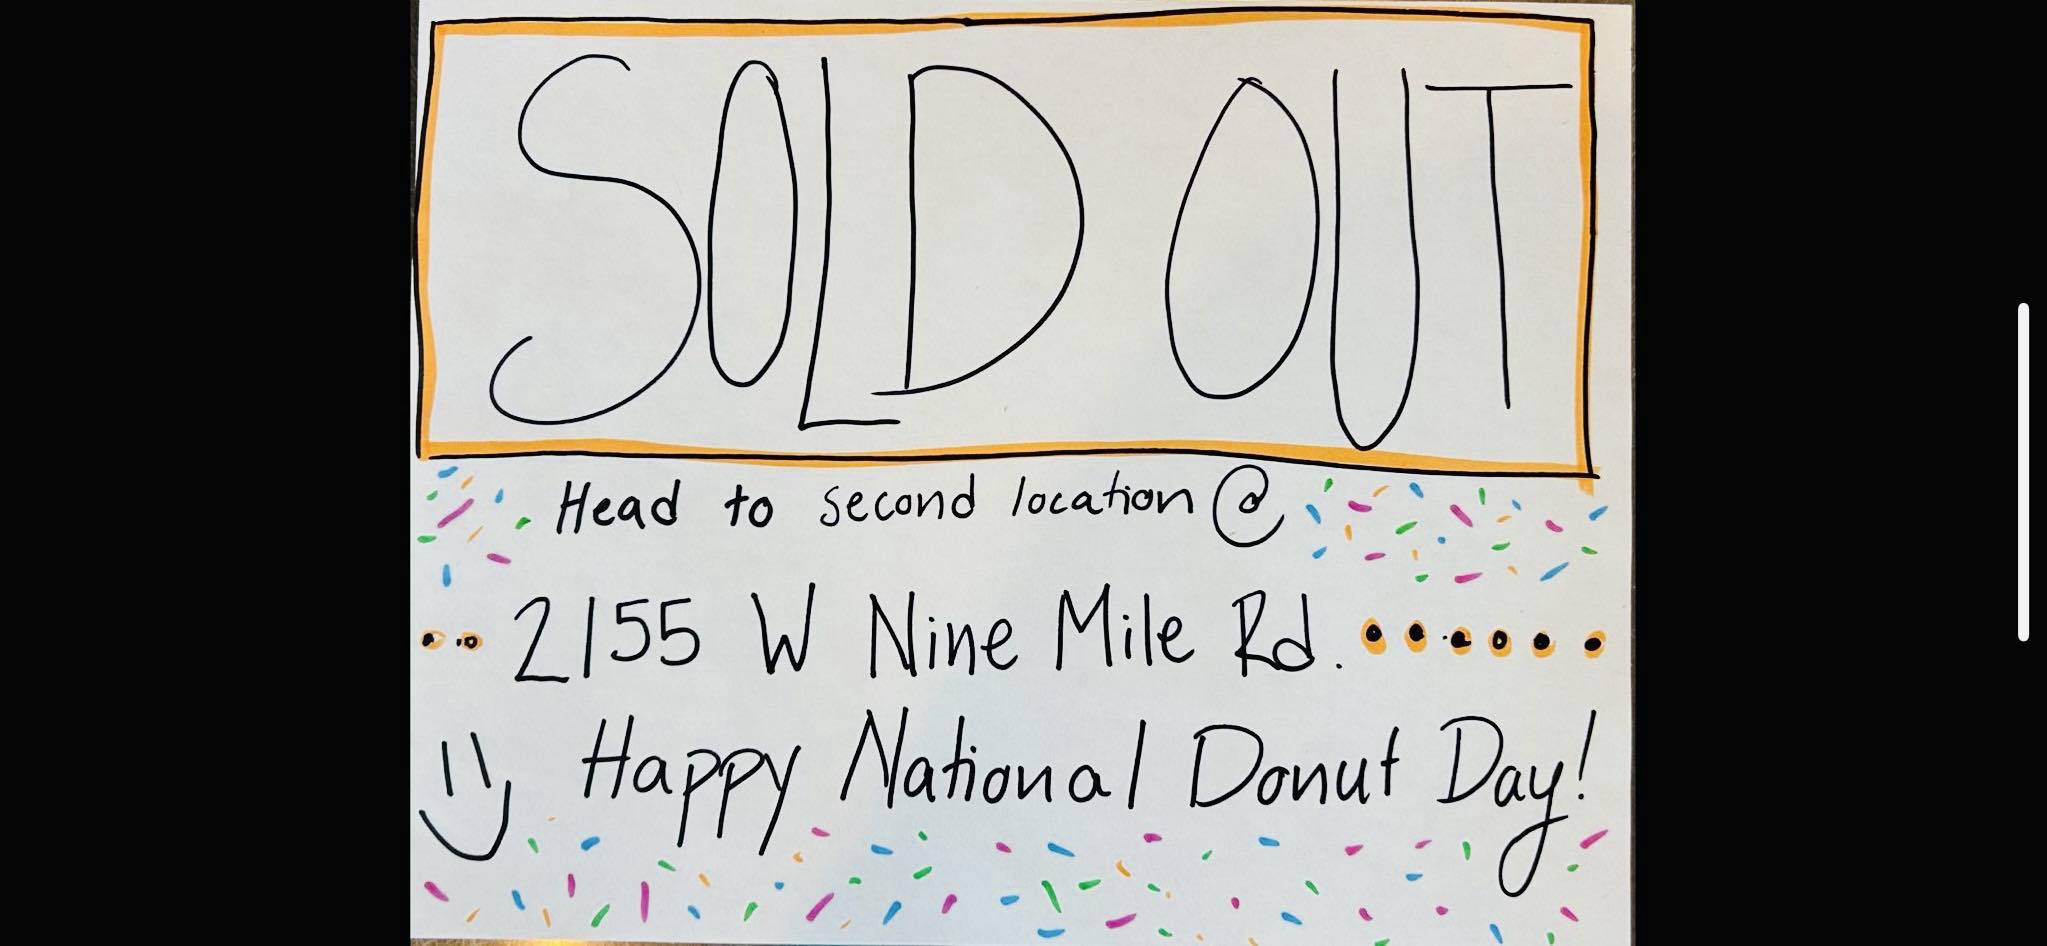 SOLD OUT
Head to second location @
2155 W Nine Mile Rd.
Happy National Donut Day!